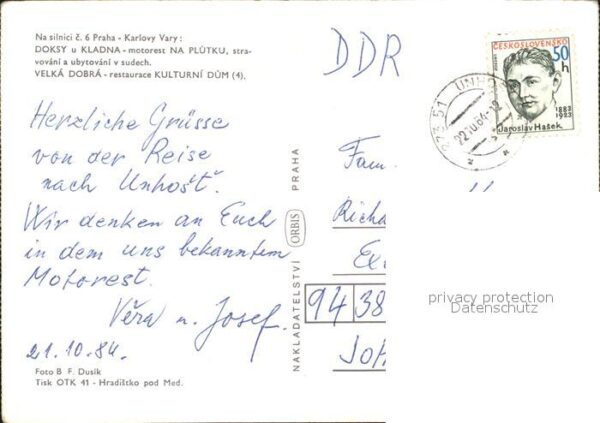 Na silnici č. 6 Praha - Karlovy Vary :
DOKSY u KLADNA - motorest NA PLŮTKU, stra-
vování a ubytování v sudech.
VELKÁ DOBRÁ - restaurace KULTURNÍ DŮM (4).
Herzliche Grüsse
von der Reise
nach Unhošť.
Wir denken an Euch
in dem uns bekanntem
Motorest.
Věra u. Josef.
21.10.84.
Foto B F. Dusík
Tisk OTK 41 - Hradištko pod Med.
NAKLADATELSTVÍ ORBIS PRAHA
DDR
ČESKOSLOVENSKO
50
h
1883
1923
Jaroslav Hašek
273 51 UNHO
Fam.
Richa
Ex
94 38
Joh
privacy protection
Datenschutz